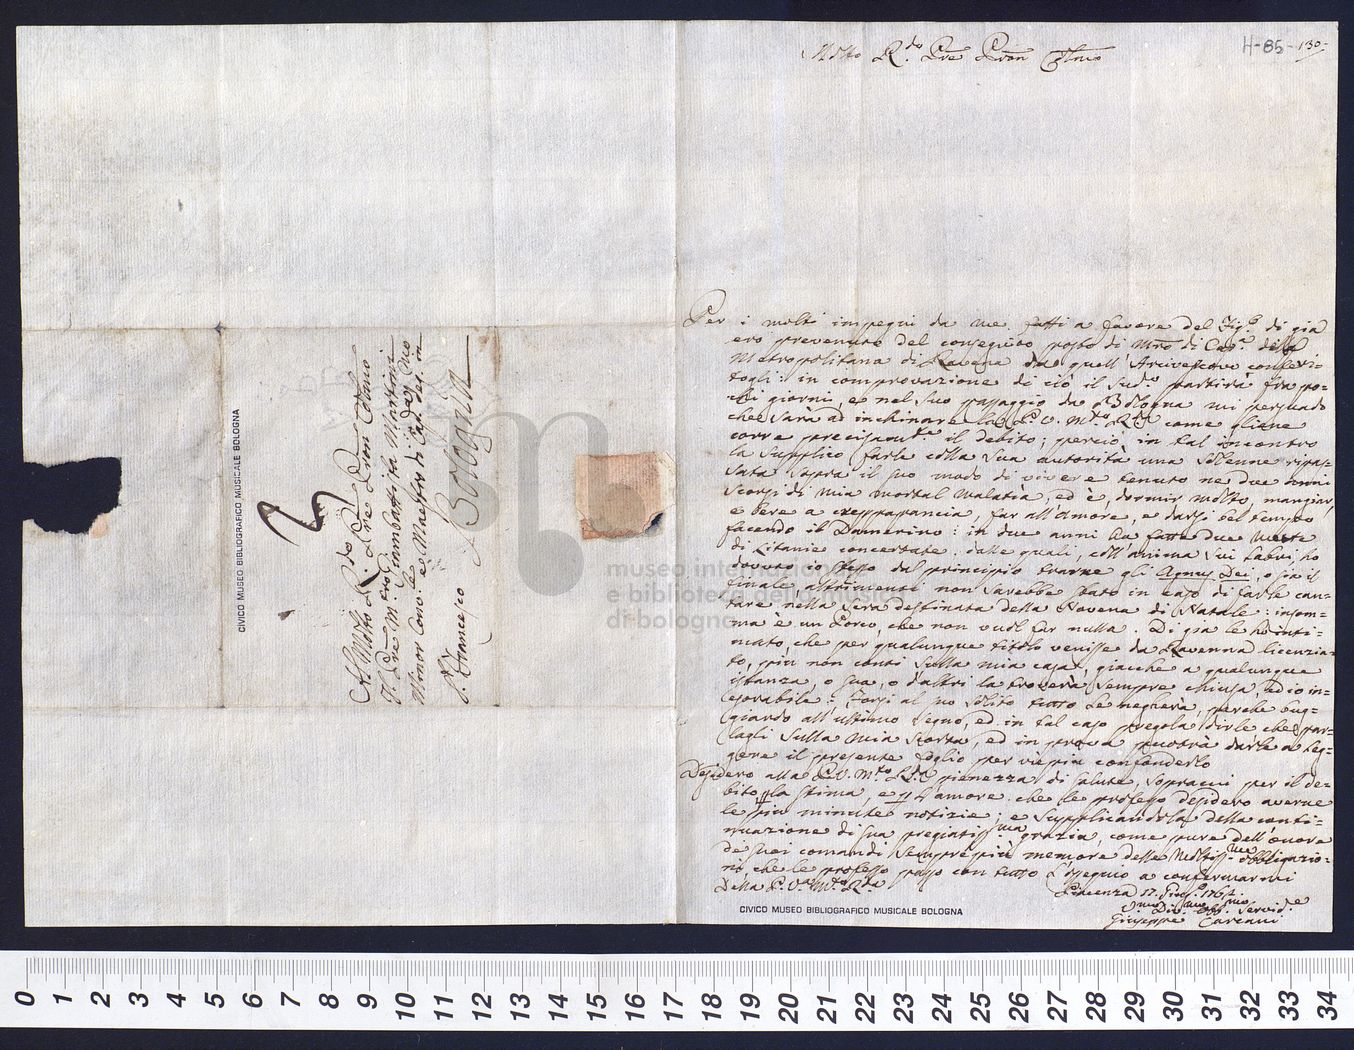 H-85-130
Molto R.do P̃re P̃ron Cõlmo
Per i molti impegni da me fatti a favore del Fig.o di già
ero prevenuto del conseguito posto di Mro di Cap.a della
Metropolitana di Ravena da quell'Arivescovo conferi=
togli: in comprovazione di ciò il Sud.o partirà fra po=
chi giorni, e nel suo passaggio da Bologna mi persuado
che sarà ad inchinare la P. V. M.to R.da come gliene
corre precisam.te il debito; perciò in tal incontro
la supplico farle colla sua autorità una solenne ripas=
sata sopra il suo modo di vivere tenuto ne due anni
scorsi di mia mortal malatia, ed è, dormir molto, mangiar,
e bere a creppapancia, far all'amore, e darsi bel tempo
facendo il Damerino: in due anni ha fatto due
di Litanie concertate, dalle quali, coll'anima sui labri, ho
dovuto io stesso dal principio trarne gli Agnus Dei, o sia il
finale altrimenti non sarebbe stato in caso di farle can=
tare nella sera destinata della Novena di Natale: insom=
ma è un Porco, che non vuol far nulla. Di già le ho inti=
mato, che per qualunque titolo venisse da Ravenna licenzia=
to, più non conti sulla mia casa, giacchè a qualunque
istanza, o sua, o d'altri la troverà sempre chiusa, ed io in=
esorabile: Forsi al suo solito tutto le negherà, perchè bug=
giardo all'ultimo segno, ed in tal caso pregola dirle che par=
lagli sulla mia scorta, ed in prova puotrà darle a leg=
gere il presente foglio per viepiù confonderlo
Desidero alla P. V. M.to R.da pienezza di salute, sopra cui per il de=
bito, la stima, e l'amore che le professo desidero averne
le più minute notizie; e supplicandola della conti=
nuazione di sua pregiatiss.ma grazia, come pure dell'onore
de suoi comandi sempre più memore delle moltiss.me obbligazio=
ni che le professo passo con tutto l'ossequio a confermarmi
Della P. V. M.to R.da
Piacenza 17. 1764.
Giuseppe Carcani
Al Molto R.do P̃re P̃ron Cõlmo
Il P̃re M.ro Giambattista Martini
Minor Con.le e Maestro di Cap. in
S. Francesco
Bologna
CIVICO MUSEO BIBLIOGRAFICO MUSICALE BOLOGNA
CIVICO MUSEO BIBLIOGRAFICO MUSICALE BOLOGNA
museo internazionale
e biblioteca della musica
di bologna
0 1 2 3 4 5 6 7 8 9 10 11 12 13 14 15 16 17 18 19 20 21 22 23 24 25 26 27 28 29 30 31 32 33 34